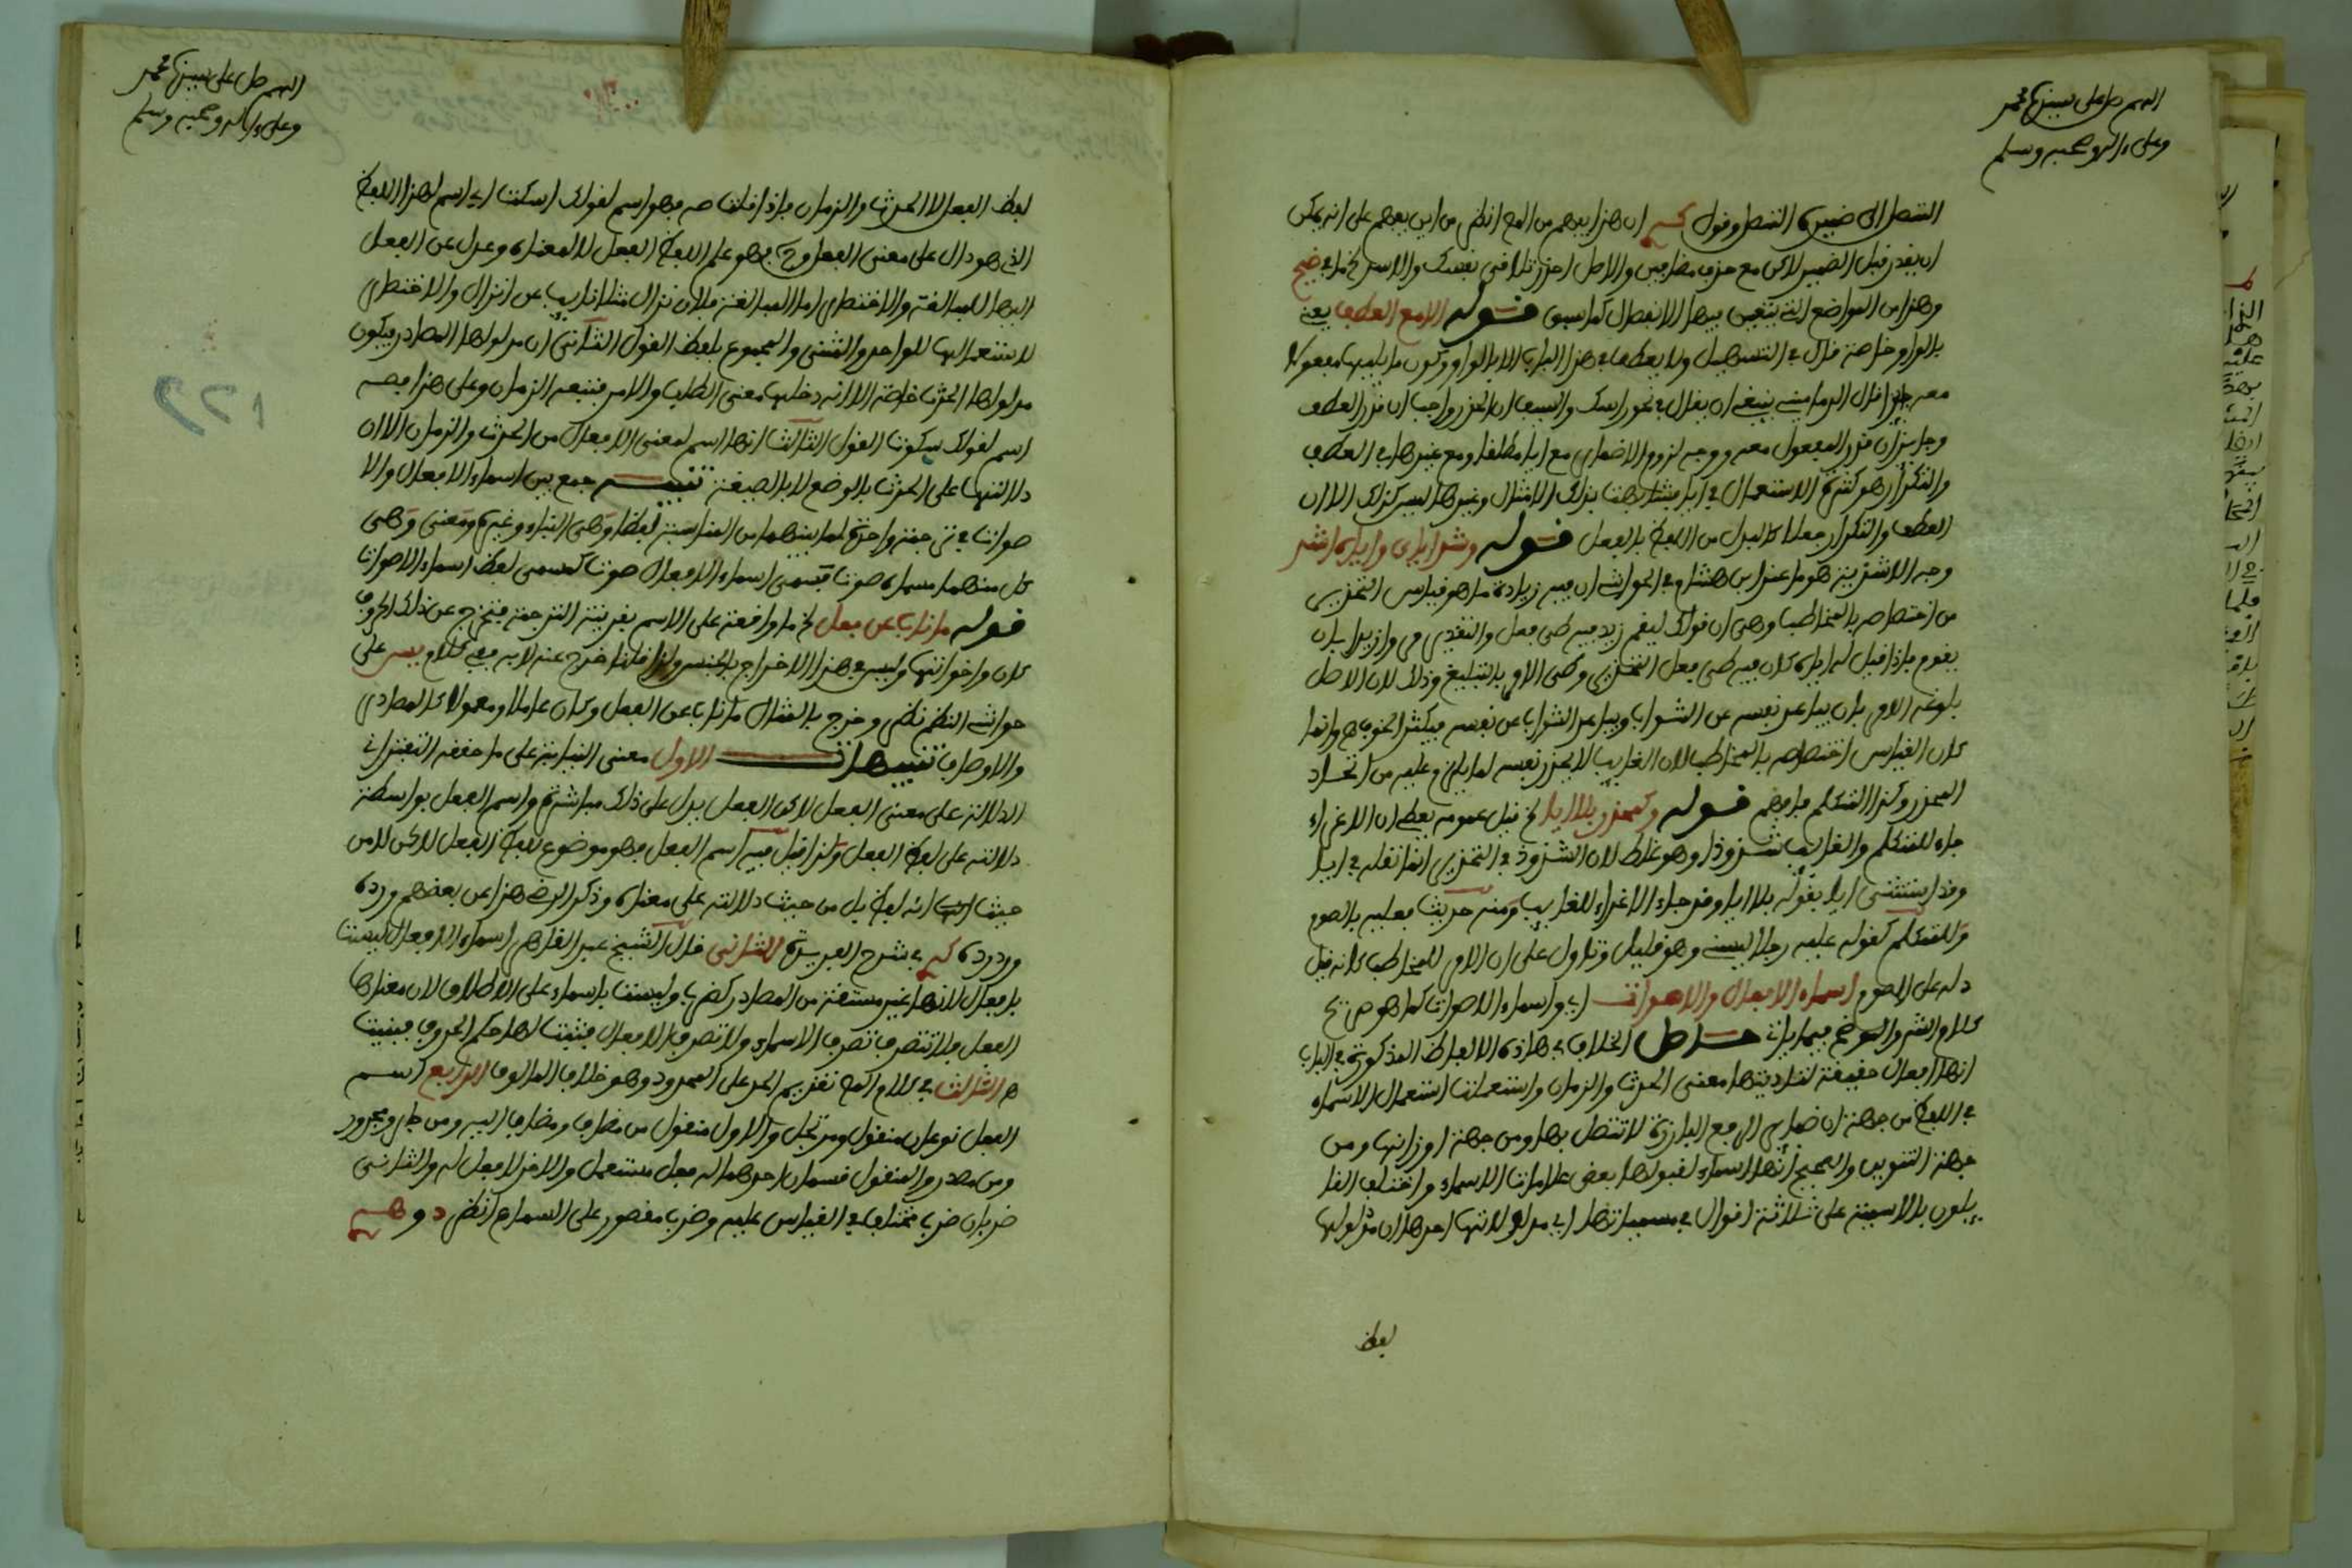 اللهم صل على سيدنا محمد
وعلى ءاله وصحبه وسلم
المتصل الى ضميره المتصل وقول ان هذا يفهم من انظر من اين يفهم على انه يمكن
ان يقدر قبل الضمير لاكن مع حذف مضافين والاصل احذر تلاقي نفسك والاسد
وهذا من المواضع التي يتعين فيها الانفصال كما سبق قوله الامع العطف يعني
بالواو خاصة قال في التسهيل ولا يعطف في هذا الباب الا بالواو وكون ما يليها مفعولا
معه جائز قال الدماميني ينبغي ان يقال في نحو راسك والسيف ان الحذر واجب ان قدر العطف
وجائز ان قدر المفعول معه ووجه لزوم الاضمار مع ايا مطلقا ومع غيرها في العطف
والتكرار هو كثرة الاستعمال في ايا وغيرها ليس كذلك الا ان
العطف والتكرار جعلا كالبدل من اللفظ بالفعل قوله وشذ اياي واياه اشذ
وجه الاشذية هو ما عند ابن هشام في الحواشي ان فيه زيادة ما هو قياس التحذير
من اختصاصه بالمخاطب وهي ان قولك ليقم زيد فيه طي فعل والتقدير مر زيدا بان
يقوم فاذا قيل له اياه كان فيه طي فعل التحذير وطي الامر بالتبليغ وذلك لان الاصل
بلوغه الامر بان يباعد نفسه عن الشواب ويباعد الشواب عن نفسه فيكثر الحذف وانما
كان القياس اختصاصه بالمخاطب لان الغائب لا يحذر نفسه لما يلزم عليه من اتحاد
المحذر وكذا المتكلم فافهم قوله وكمحذر بلا ايا قيل عمومه يعطي ان الاغراء
جاء للمتكلم والغائب شذوذا وهو غلط لان الشذوذ في التحذير انما نقله في ايا
وقد استثنى ايا بقوله بلا ايا وقد جاء الاغراء للغائب ومنه حديث فعليه بالصوم
وللمتكلم كقوله عليه رجلا ليسني وهو قليل وتاول على ان الامر للمخاطب كانه قيل
دله على الصوم اسماء الافعال والاصوات اي واسماء الاصوات كما هو صريح
كلام الشر والموضح فيما ياتي حاصل الخلاف في هاذه الالفاظ المذكورة في الباب
انها افعال حقيقة لتاديتها معنى الحدث والزمان واستعملت استعمال الاسماء
في اللفظ من جهة ان ضمائر الرفع البارزة لا تتصل بها ومن جهة اوزانها ومن
جهة التنوين والصحيح انها اسماء لقبولها بعض علامات الاسماء واختلف القا
ئلون بالاسمية على ثلاثة اقوال في مسمياتها اي مدلولاتها احدها ان مدلولها
لفظ
اللهم صل على سيدنا محمد
وعلى ءاله وصحبه وسلم
١٢٢
لفظ الفعل لا الحدث والزمان فاذا قلت صه فهو اسم لقولك اسكت اي اسم لهذا اللفظ
الذي هو دال على معنى الفعل وح فهو علم اللفظ الفعل لا لمعناه وعدل عن الفعل
اليها للمبالغة والاختصار اما المبالغة فلان نزال مثلا نائب عن انزال والاختصار
لاستعمالها للواحد والمثنى والمجموع بلفظ القول الثاني ان مدلولها المصادر فيكون
مدلولها الحدث خاصة الا انه دخلها معنى الطلب والامر فتبعه الزمان وعلى هذا فصه
اسم لقولك سكوتا القول الثالث انها اسم لمعنى الافعال من الحدث والزمان الا ان
دلالتها على الحدث بالوضع لا بالصيغة تنبيه جمع بين اسماء الافعال والا
صوات في ترجمة واحدة لما بينهما من المناسبة لفظا وهي البناء وغيره ومعنى وهي
كل منهما مسماه صوتا فمسمى اسماء الافعال صوت كمسمى لفظ اسماء الاصوات
قوله ما ناب عن فعل ما واقعة على الاسم بقرينة الترجمة فتخرج عن ذلك الحروف
كان واخواتها وليس في هذا الاخراج بالجنس ولذا قلنا خرج عنه لا به ففي كلام يس على
حواشي النظم نظر وخرج بالمثال ما ناب عن الفعل وكان عاملا ومعمولا كالمصادر
والاوصاف تنبيهات الاول معنى النيابة على ما حققه التفتزاني
الدلالة على معنى الفعل لاكن الفعل يدل على ذلك مباشرة واسم الفعل بواسطة
دلالته على لفظ الفعل ولذا قيل فيه اسم الفعل فهو موضوع للفظ الفعل لاكن لا من
حيث انه لفظ بل من حيث دلالته على معناه وذكر الرضي هذا عن بعضهم ورده
وردده في شرح الفريدة الثاني قال الشيخ عبد القاهر اسماء الافعال ليست
بافعال لانها غير مشتقة من المصادر كضرب وليست باسماء على الاطلاق لان معناها
الفعل فلا تتصرف تصرف الاسماء ولا تصرف الافعال فثبت لها حكم الحروف فبنيت
الثالث في كلام تقديم الحد على المحدود وهو خلاف المالوف الرابع اسم
الفعل نوعان منقول ومرتجل والاول منقول من مضاف ومضاف اليه ومن جار ومجرور
ومن مصدر والمنقول قسمان احدهما له فعل مستعمل والاخر لا فعل له والثاني
ضربان ضرب مختلف في القياس عليه وضرب مقصور على السماع انظر